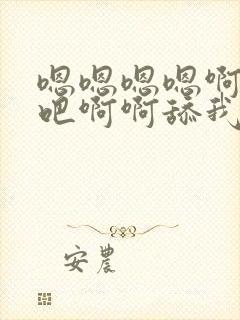 嗯嗯嗯嗯啊
吧啊啊舔我
安農